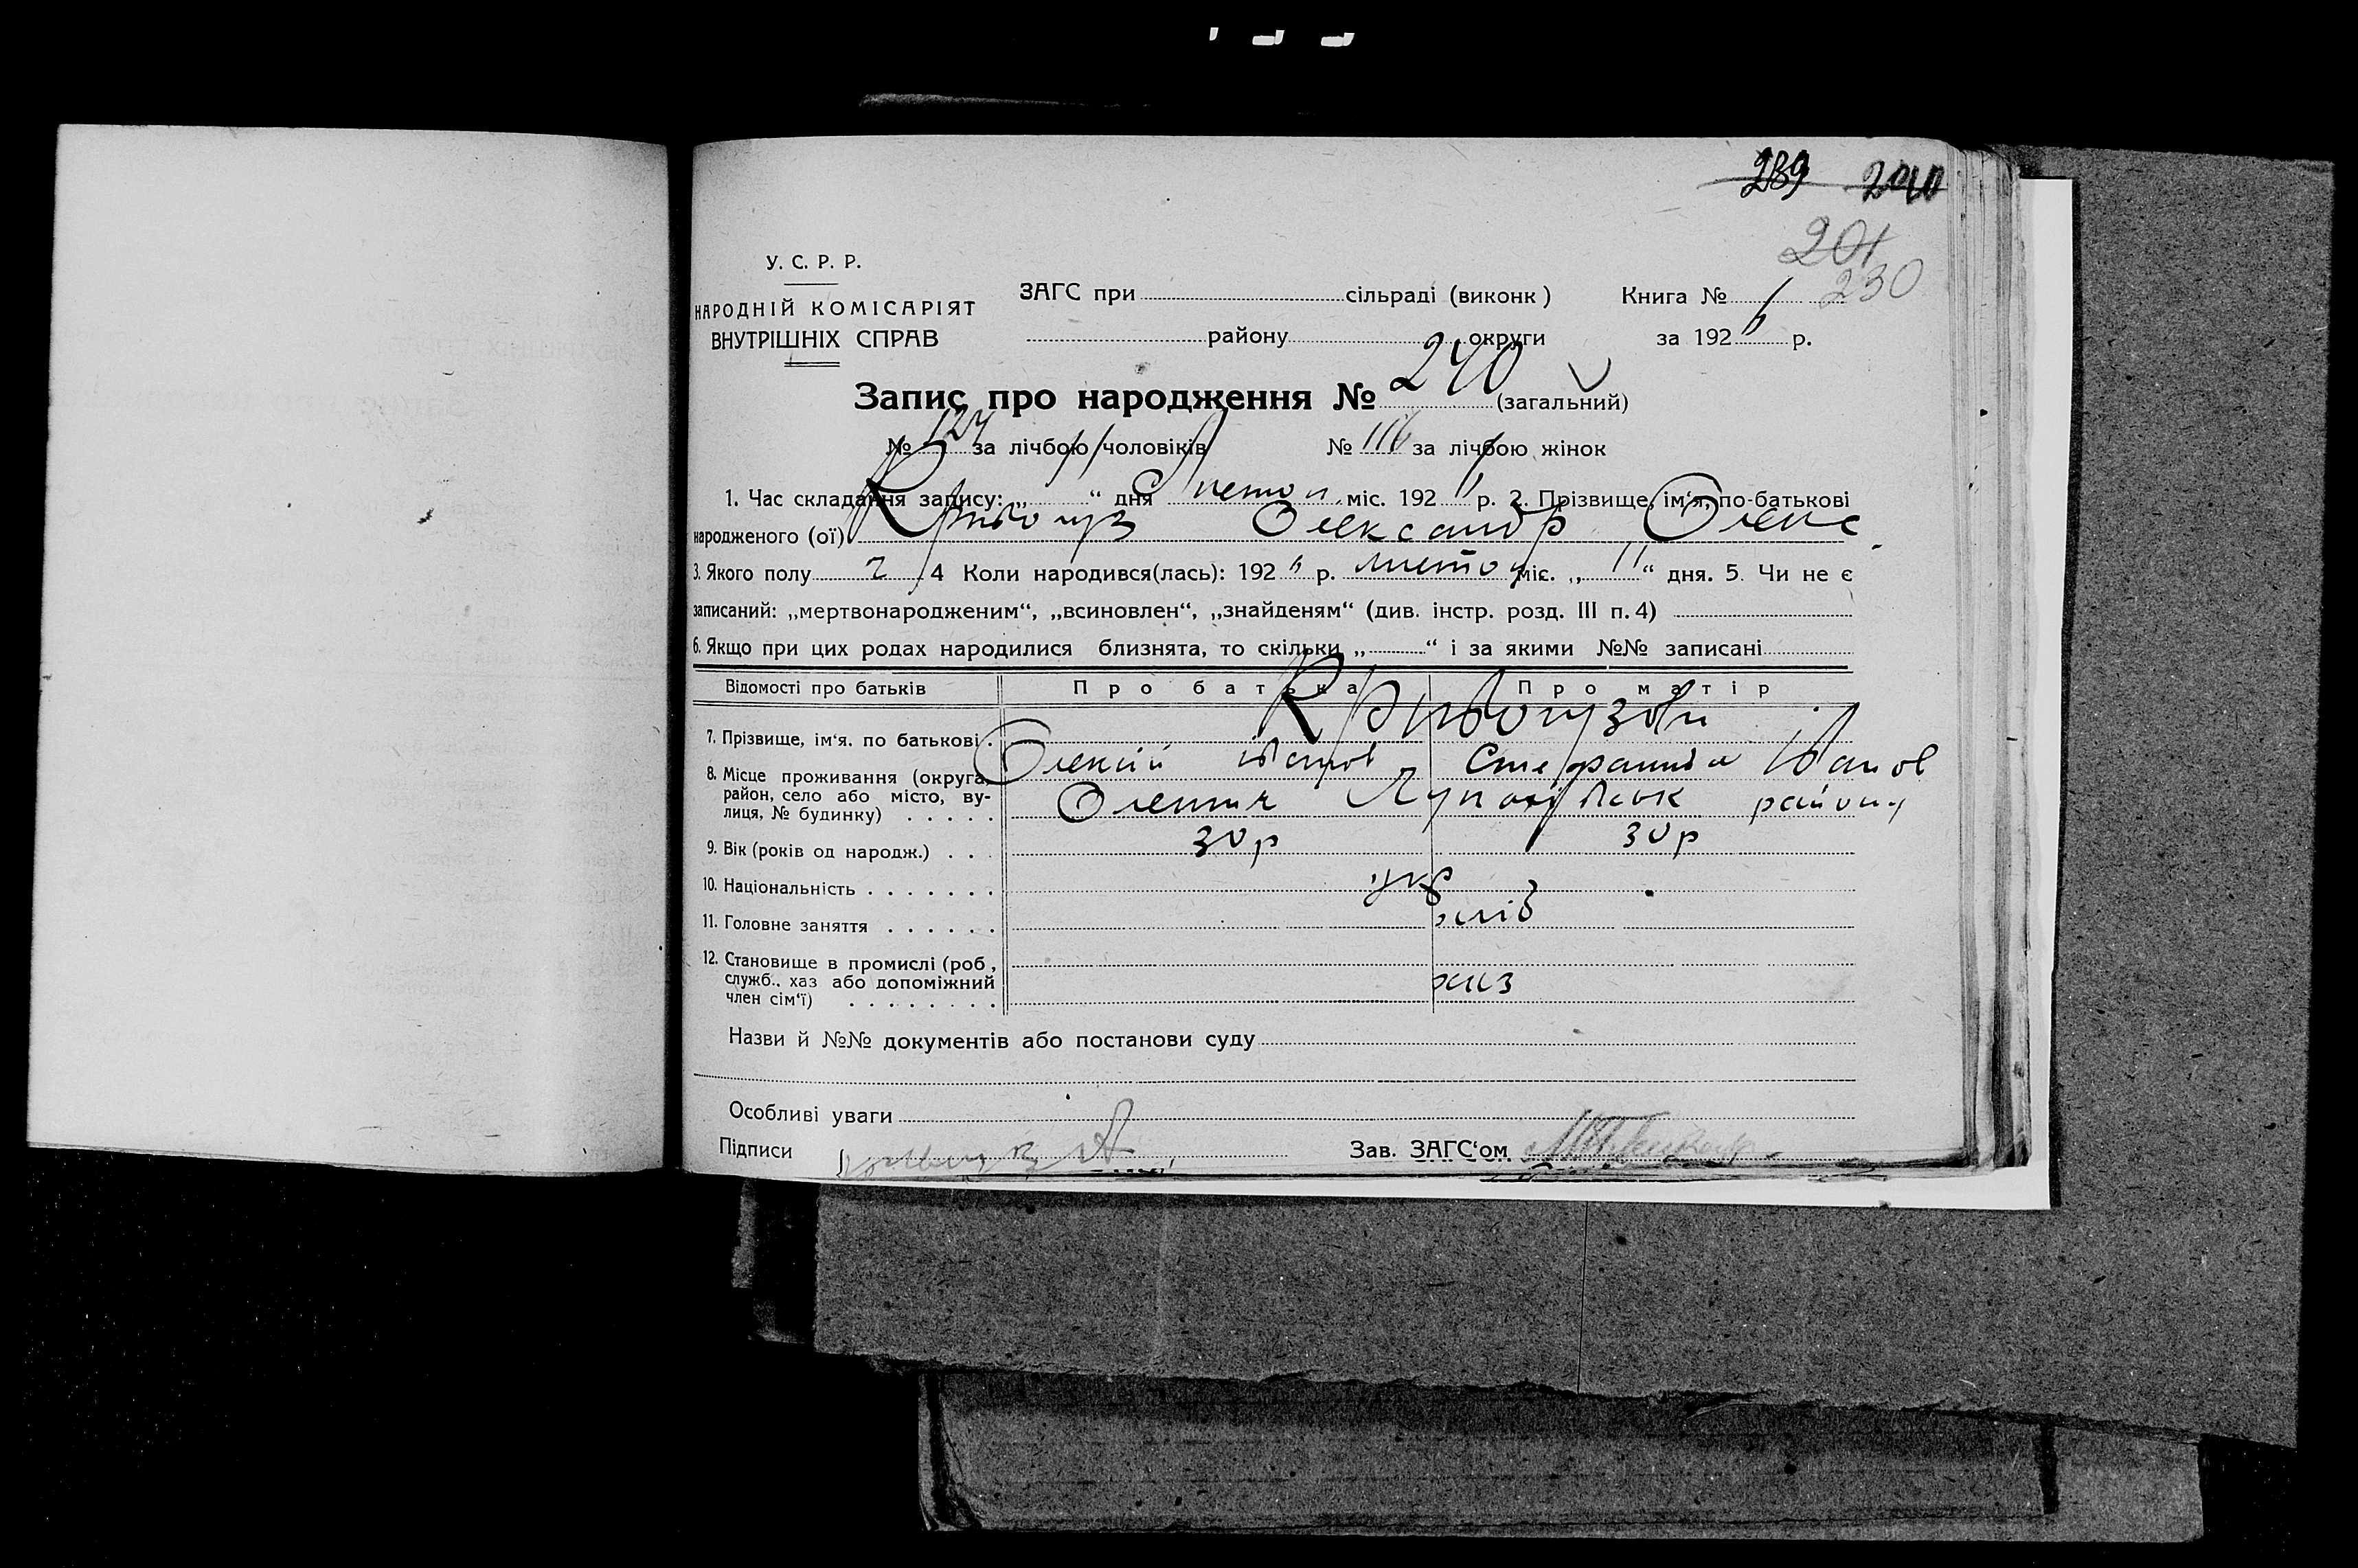 239 240
201
230
У. С. Р. Р.
НАРОДНІЙ КОМІСАРІЯТ
ВНУТРІШНІХ СПРАВ
ЗАГС при сільраді (виконк) Книга №
району округи за 1926 р.
Запис про народження № 240 (загальний)
№ 124 за лічбою чоловіків № 116 за лічбою жінок
1. Час складання запису: „ “ дня листоп міс. 192 р. 2. Прізвище, ім‘я, по-батькові
народженого (ої) Кривогуз Олександр Олекс
3. Якого полу ч 4 Коли народився(лась): 192 „ р. листоп міс. „ 11 “ дня. 5. Чи не є
записаний: „мертвонародженим“, „всиновлен“, „знайденям“ (див. інстр. розд. III п. 4)
6. Якщо при цих родах народилися близнята, то скільки „ “ і за якими №№ записані
Відомості про батьків Про батька Про матір
Кривогузови
7. Прізвище, ім‘я. по батькові . Олексій Іванов Степанида Іванов
8. Місце проживання (округа,
район, село або місто, ву-
лиця, № будинку) . . . . . району
9. Вік (років од народж.) . . . 30 р 30 р
10. Національність . . . . . . . укр
11. Головне заняття . . . . . . хліб
12. Становище в промислі (роб.,
служб., хаз або допоміжний
член сім‘ї) . . . . . . . . хаз
Назви й №№ документів або постанови суду
Особливі уваги
Підписи Зав. ЗАГС‘ом